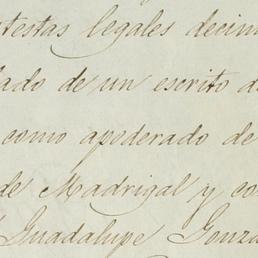 testas legales decim
lado de un escrito d
como apoderado de
de Madrigal y co
Guadalupe Gonza